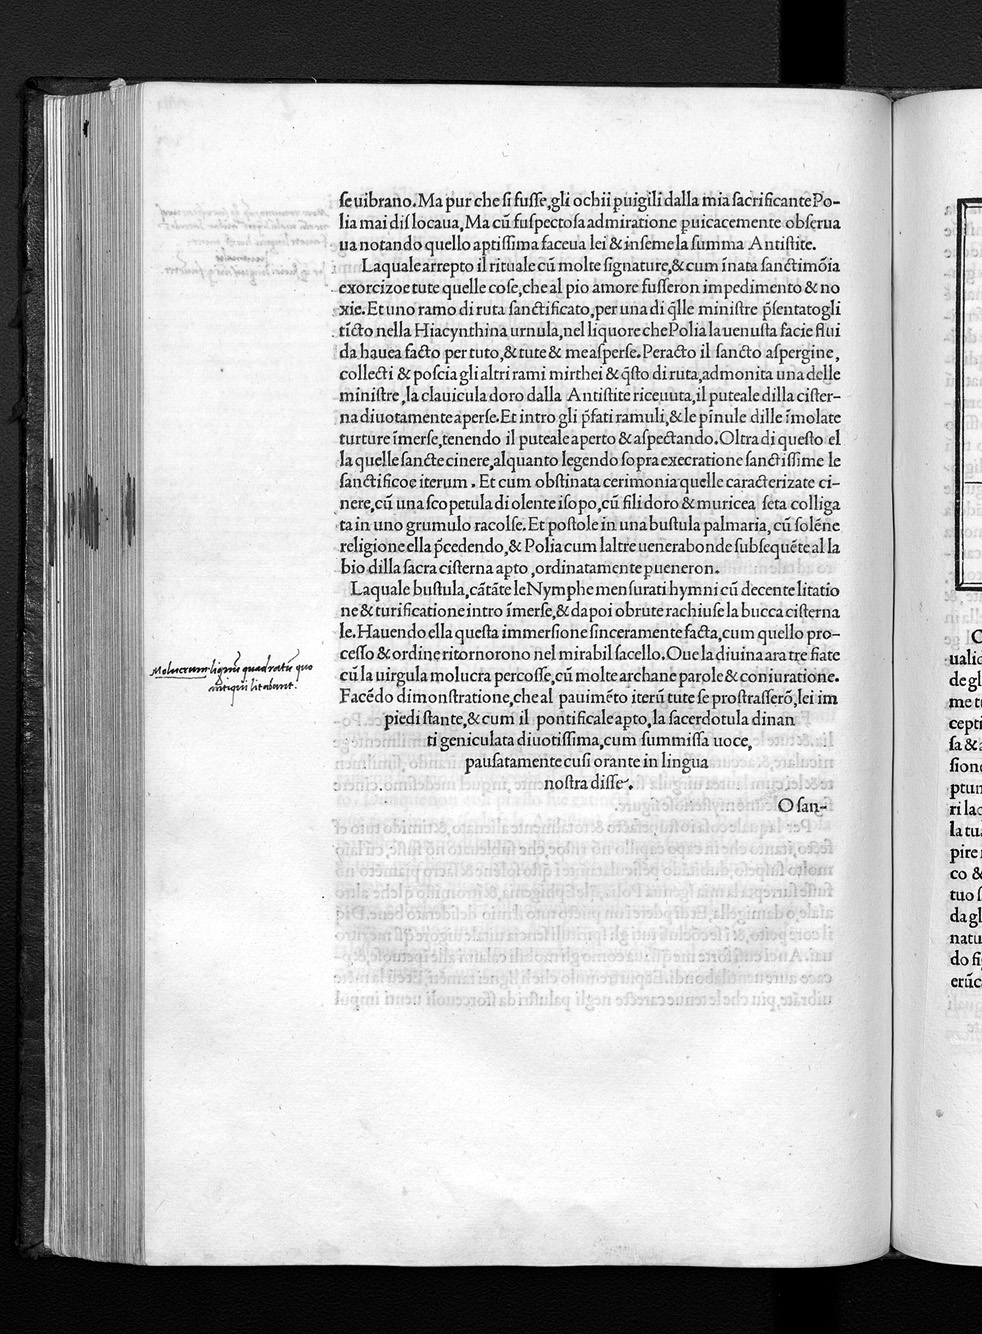 ſe uibrano. Ma pur che ſi fuſſe, gli ochii ꝑuigili dalla mia ſacrificante Po-
lia mai diſlocaua, Ma cũ ſuſpectoſa admiratione ꝑuicacemente obſerua
ua notando quello aptiſſima faceua lei & inſeme la ſumma Antiſtite.
Laquale arrepto il rituale cũ molte ſignature, & cum ĩnata ſanctimõia
exorcizoe tute quelle coſe, che al pio amore fuſſeron impedimento & no
xie. Et uno ramo di ruta ſanctificato, per una di q̃lle miniſtre p̃ſentatogli
tĩcto nella Hiacynthina urnula, nel liquore che Polia la uenuſta facie flui
da hauea facto per tuto, & tute & me aſperſe. Peracto il ſancto aſpergine,
collecti & poſcia gli altri rami mirthei & q̃ſto di ruta, admonita una delle
miniſtre, la clauicula doro dalla Antiſtite riceuuta, il puteale dilla ciſter-
na diuotamente aperſe. Et intro gli p̃fati ramuli, & le pĩnule dille ĩmolate
turture ĩmerſe, tenendo il puteale aperto & aſpectando. Oltra di queſto el
la quelle ſancte cinere, alquanto legendo ſopra execratione ſanctiſſime le
ſanctificoe iterum. Et cum obſtinata cerimonia quelle caracterizate ci-
nere, cũ una ſcopetula di olente iſopo, cũ fili doro & muricea ſeta colliga
ta in uno grumulo racolſe. Et poſtole in una buſtula palmaria, cũ ſolẽne
religione ella p̃cedendo, & Polia cum laltre uenerabonde ſubſequẽte al la
bio dilla ſacra ciſterna apto, ordinatamente ꝑueneron.
Laquale buſtula, cãtãte le Nymphe menſurati hymni cũ decente litatio
ne & turificatione intro ĩmerſe, & dapoi obrute rachiuſe la bucca ciſterna
le. Hauendo ella queſta immerſione ſinceramente facta, cum quello pro-
ceſſo & ordine ritornorono nel mirabil ſacello. Oue la diuina ara tre fiate
cũ la uirgula molucra percoſſe, cũ molte archane parole & coniuratione.
Facẽdo dimonſtratione, che al pauimẽto iterũ tute ſe proſtraſſerõ, lei im
piedi ſtante, & cum il pontificale apto, la ſacerdotula dinan
ti geniculata diuotiſſima, cum ſummiſſa uoce,
pauſatamente cuſi orante in lingua
noſtra diſſe.
O ſan-
Molucrum lignũ quadratũ quo
antiqui litabant.